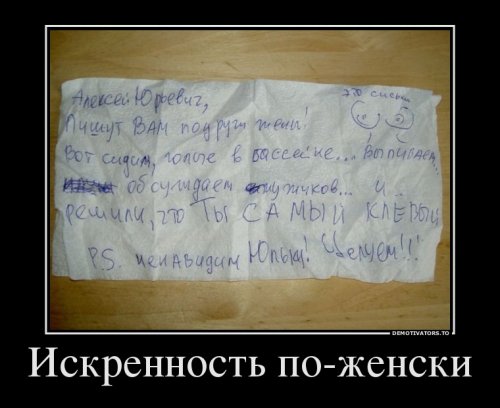 это сиськи
Алексей Юрьевич,
Пишут ВАМ подруги жены!
Вот сидим, голые в бассейне... Выпиваем,
обсуждаем мужичков... и
решили, что ТЫ САМЫЙ КЛЕВЫЙ
P.S. ненавидим Юльку! Целуем!!!
DEMOTIVATORS.TO
Искренность по-женски